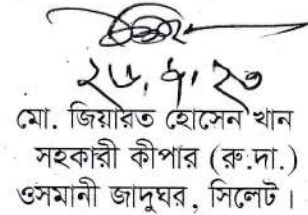 ২৬.৭.২৩
মো. জিয়ারত হোসেন খান
সহকারী কীপার (রু.দা.)
ওসমানী জাদুঘর, সিলেট।